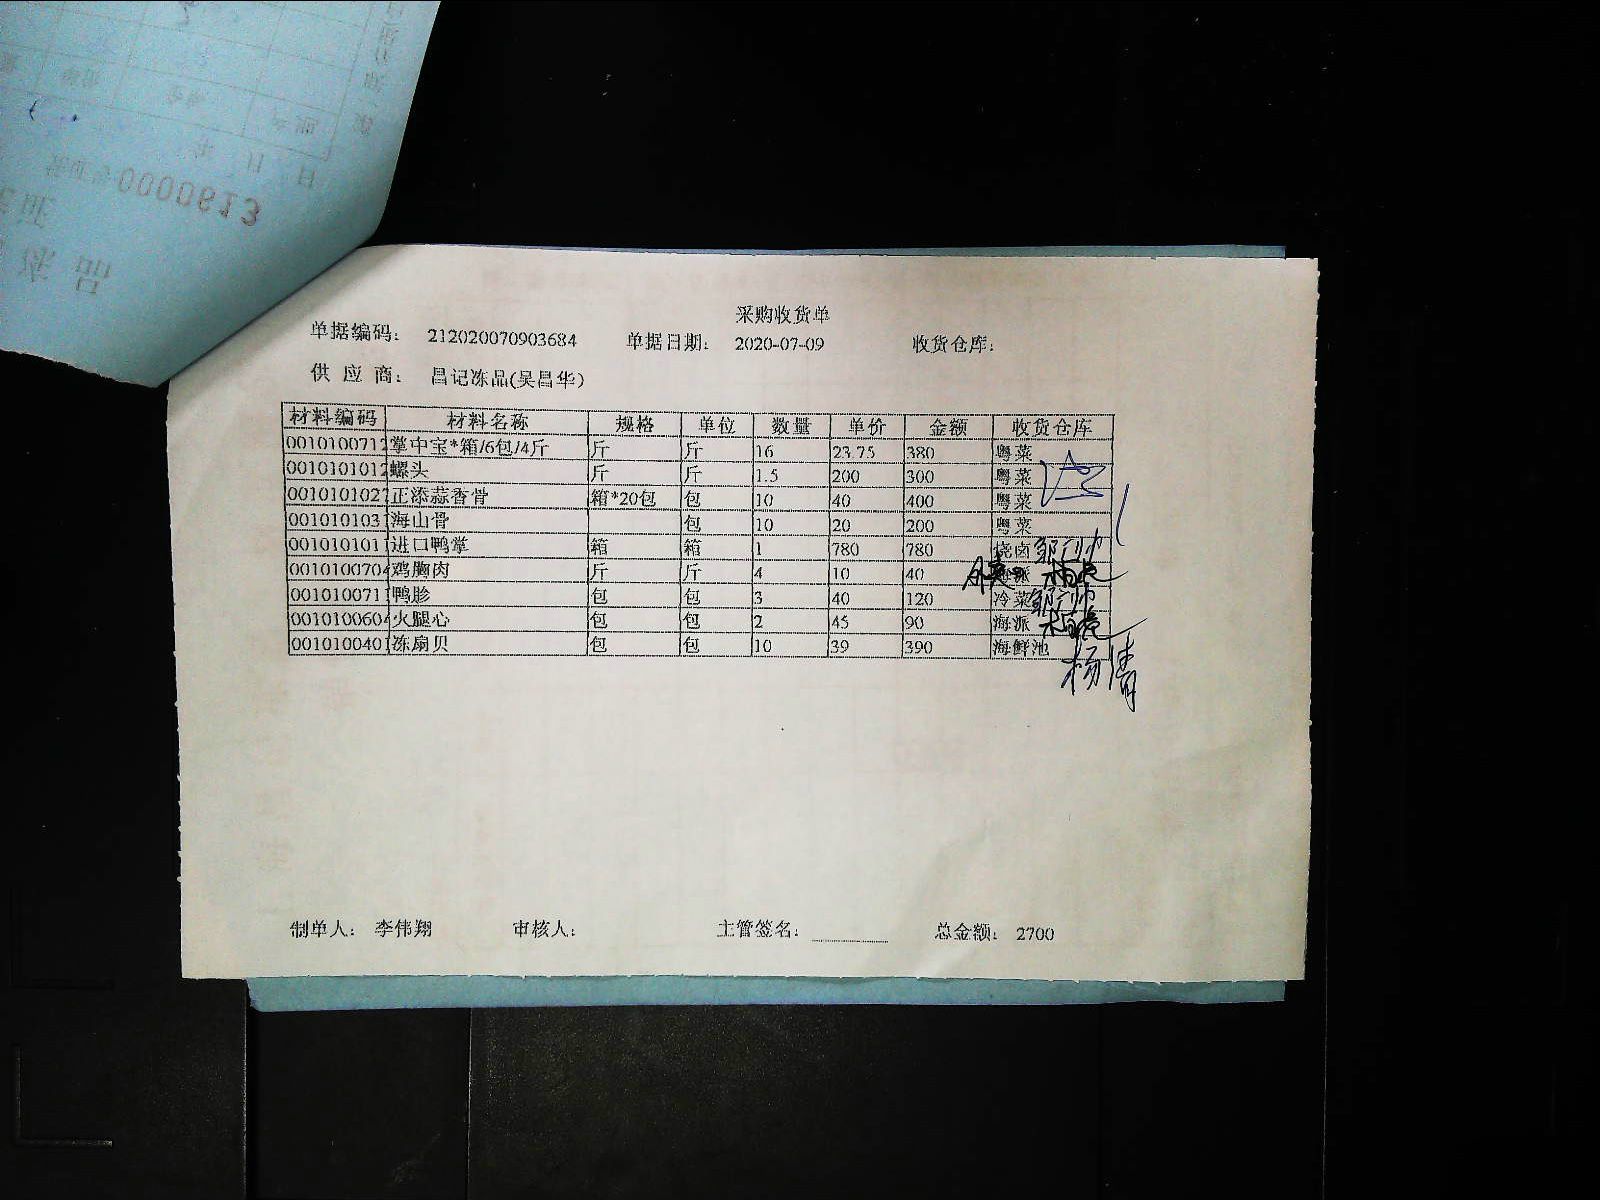 0000613
采购收货单
单据编码： 212020070903684 单据日期： 2020-07-09 收货仓库：
供 应 商： 昌记冻品(吴昌华)
材料编码 材料名称 规格 单位 数量 单价 金额 收货仓库
0010100712 掌中宝*箱/6包/4斤 斤 斤 16 23.75 380 粤菜
0010101012 螺头 斤 斤 1.5 200 300 粤菜
0010101027 正添蒜香骨 箱*20包 包 10 40 400 粤菜
001010103 海山骨 包 10 20 200 粤菜
001010101 进口鸭掌 箱 箱 1 780 780 烧卤
001010070 鸡胸肉 斤 斤 4 10 40 派
001010071 鸭胗 包 包 3 40 120 冷菜
001010060 火腿心 包 包 2 45 90 海派
001010040 冻扇贝 包 包 10 39 390 海鲜池
杨倩
制单人： 李伟翔 审核人： 主管签名： 总金额： 2700